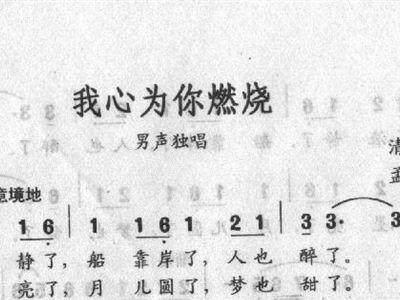 我心为你燃烧
男声独唱
意境地
1 6 1 1 6 1 2 1 3 3· 3
静了，船 靠岸了，人也 醉了。
亮了，月 儿圆了，梦也 甜了。